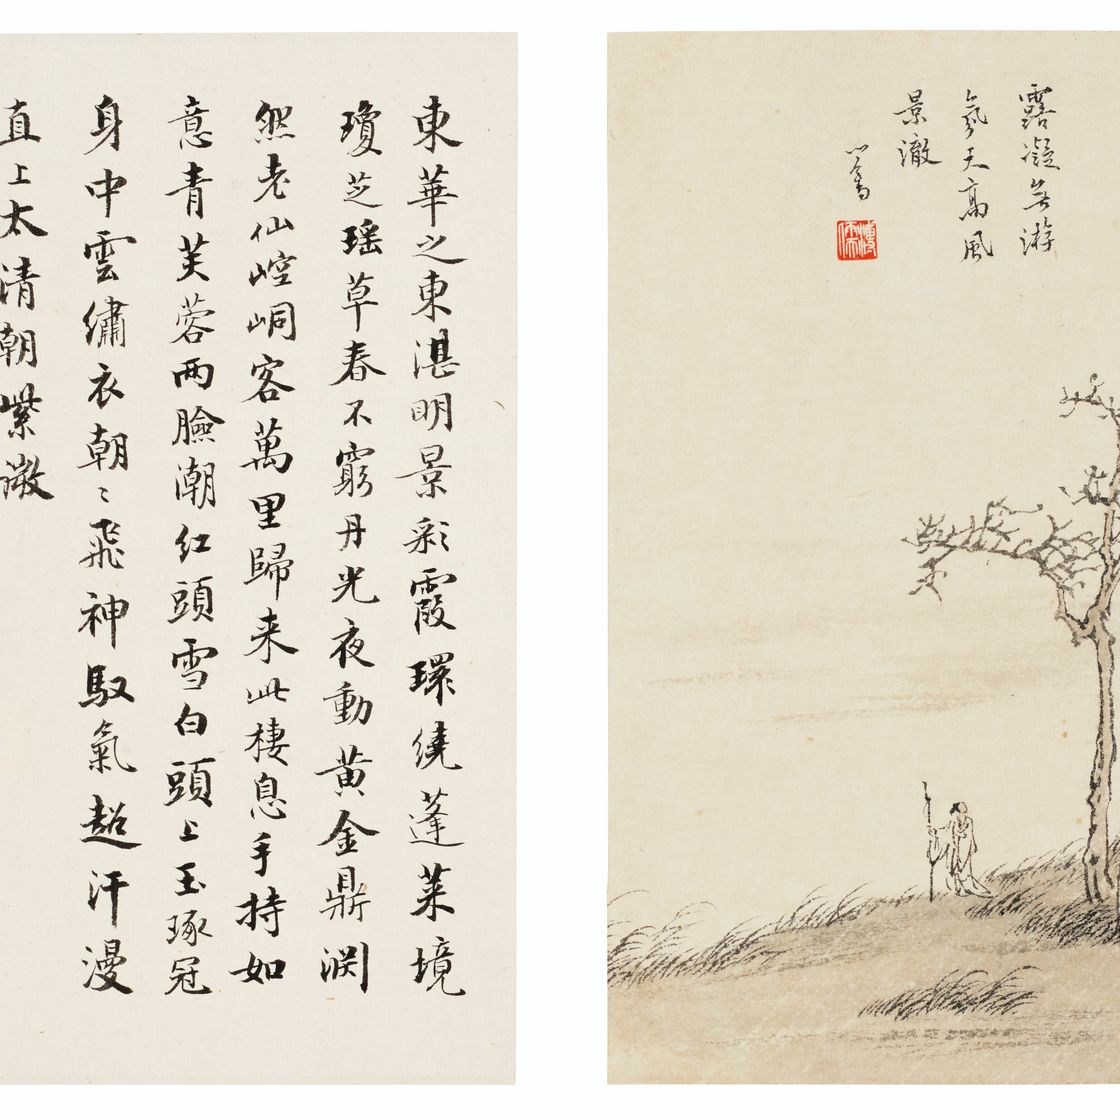 露凝無游
氛天高風
景澈
心畬
溥儒
東華之東湛明景彩霞環繞蓬萊境
瓊芝瑶草春不窮丹光夜動黄金鼎渊
然老仙崆峒客萬里歸来此棲息手持如
意青芙蓉兩臉潮红頭雪白頭上玉琢冠
身中雲繡衣朝〻飛神馭氣超汗漫
直上太清朝紫微